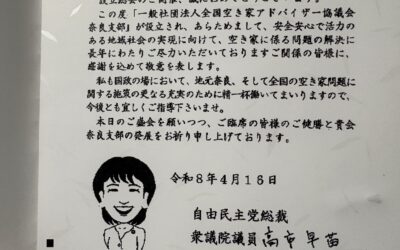 この度「一般社団法人全国空き家アドバイザー協議会
奈良支部」が設立され、あらためまして、安全安心で活力の
ある地域社会の実現に向けて、空き家に係る問題の解決に
長年にわたりご尽力いただいておりますご関係の皆様に、
感謝を込めて敬意を表します。
私も国政の場において、地元奈良、そして全国の空き家問題に
関する施策の更なる充実のために精一杯働いてまいりますので、
今後とも宜しくご指導下さいませ。
本日のご盛会を願いつつ、ご臨席の皆様のご健勝と貴会
奈良支部の発展をお祈り申し上げております。
令和８年４月１６日
自由民主党総裁
衆議院議員 高市早苗